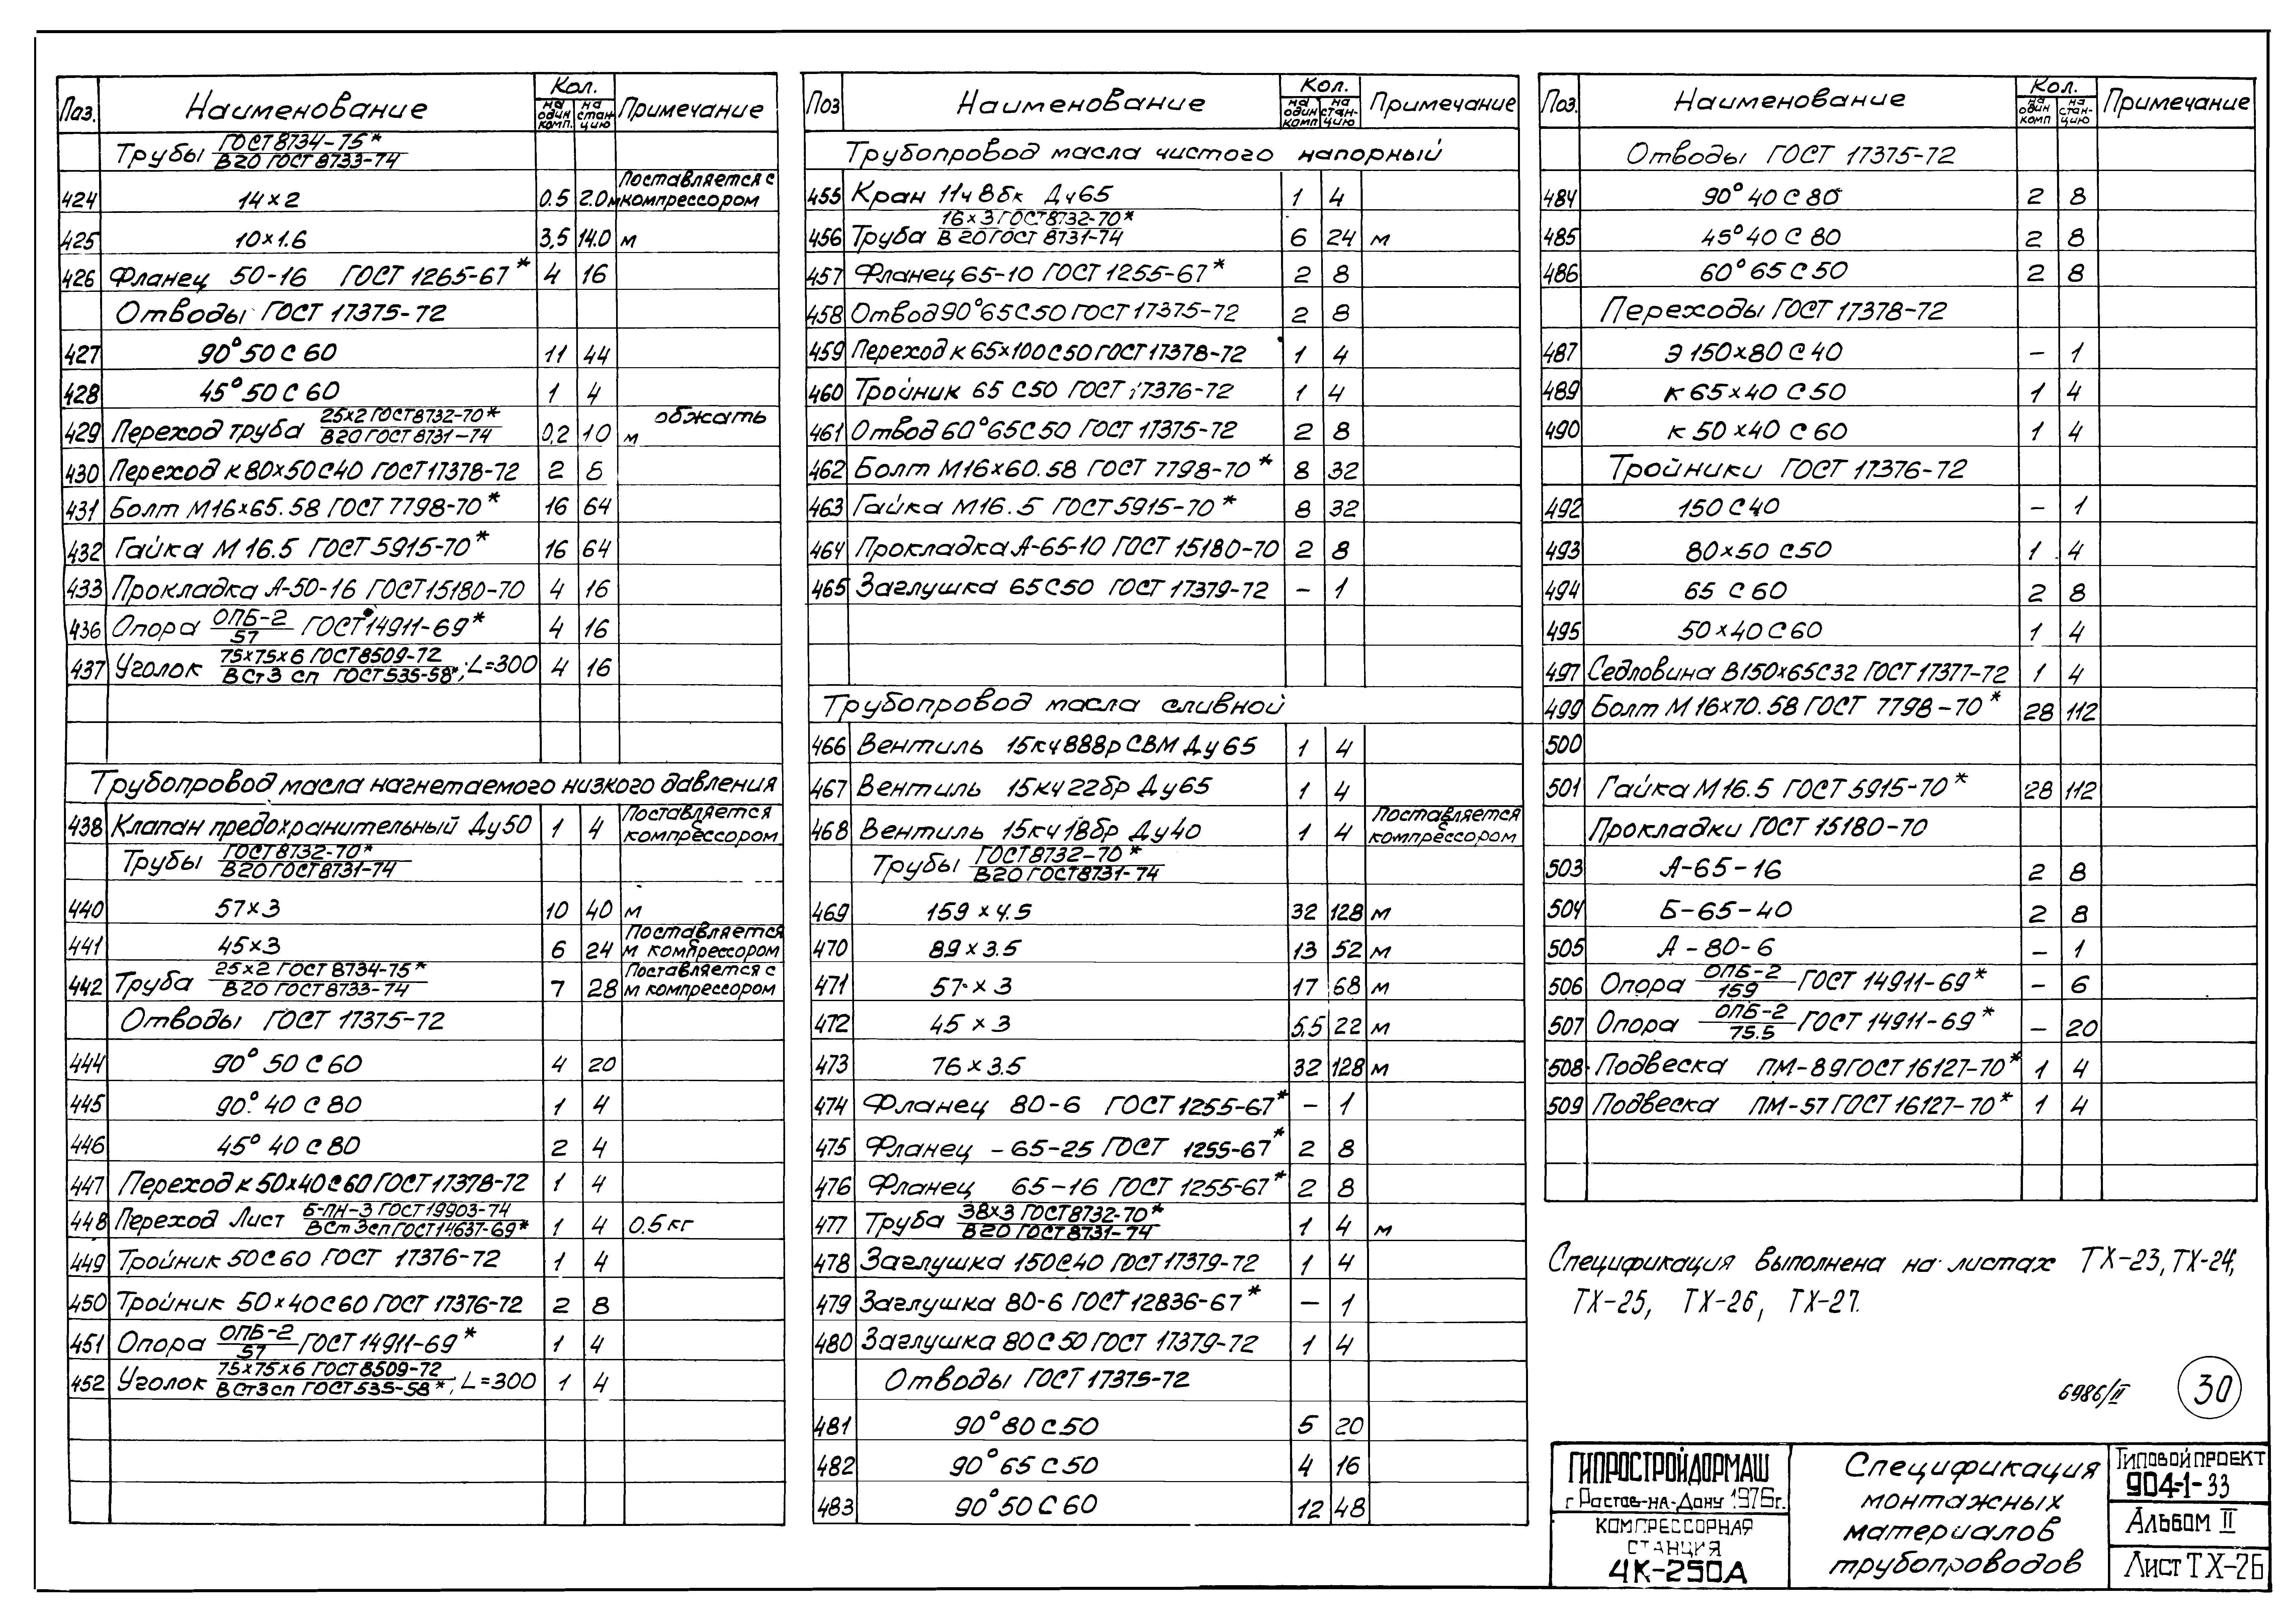 Поз. Наименование Кол. на один комп. на станцию Примечание
Трубы ГОСТ 8734-75* / В20 ГОСТ 8733-74
424 14×2 0.5 2.0 м Поставляется с компрессором
425 10×1.6 3,5 14.0 м
426 Фланец 50-16 ГОСТ 1265-67* 4 16
Отводы ГОСТ 17375-72
427 90° 50 С 60 11 44
428 45° 50 С 60 1 4
429 Переход труба 25×2 ГОСТ 8732-70* / В20 ГОСТ 8731-74 0,2 10 м обжать
430 Переход К 80×50 С40 ГОСТ 17378-72 2 8
431 Болт М16×65.58 ГОСТ 7798-70* 16 64
432 Гайка М 16.5 ГОСТ 5915-70* 16 64
433 Прокладка А-50-16 ГОСТ 15180-70 4 16
436 Опора ОПБ-2 / 57 ГОСТ 14911-69* 4 16
437 Уголок 75×75×6 ГОСТ 8509-72 / В Ст3 сп ГОСТ 535-58*; L=300 4 16
Трубопровод масла нагнетаемого низкого давления
438 Клапан предохранительный Ду50 1 4 Поставляется с компрессором
Трубы ГОСТ 8732-70* / В20 ГОСТ 8731-74
440 57×3 10 40 м
441 45×3 6 24 м Поставляется с компрессором
442 Труба 25×2 ГОСТ 8734-75* / В20 ГОСТ 8733-74 7 28 м Поставляется с компрессором
Отводы ГОСТ 17375-72
444 90° 50 С 60 4 20
445 90° 40 С 80 1 4
446 45° 40 С 80 2 4
447 Переход К 50×40 С 60 ГОСТ 17378-72 1 4
448 Переход Лист Б-ПН-3 ГОСТ 19903-74 / В Ст 3сп ГОСТ 14637-69* 1 4 0.5 кг
449 Тройник 50 С 60 ГОСТ 17376-72 1 4
450 Тройник 50×40 С 60 ГОСТ 17376-72 2 8
451 Опора ОПБ-2 / 57 ГОСТ 14911-69* 1 4
452 Уголок 75×75×6 ГОСТ 8509-72 / В Ст3 сп ГОСТ 535-58*; L=300 1 4
Поз Наименование Кол. на один комп на станцию Примечание
Трубопровод масла чистого напорный
455 Кран 11ч 8бк Ду65 1 4
456 Труба 16×3 ГОСТ 8732-70* / В 20 ГОСТ 8731-74 6 24 м
457 Фланец 65-10 ГОСТ 1255-67* 2 8
458 Отвод 90° 65 С 50 ГОСТ 17375-72 2 8
459 Переход К 65×100 С 50 ГОСТ 17378-72 1 4
460 Тройник 65 С50 ГОСТ 17376-72 1 4
461 Отвод 60° 65 С 50 ГОСТ 17375-72 2 8
462 Болт М16×60.58 ГОСТ 7798-70* 8 32
463 Гайка М16.5 ГОСТ 5915-70* 8 32
464 Прокладка А-65-10 ГОСТ 15180-70 2 8
465 Заглушка 65С50 ГОСТ 17379-72 – 1
Трубопровод масла сливной
466 Вентиль 15кч888р СВМ Ду 65 1 4
467 Вентиль 15кч 22бр Ду65 1 4
468 Вентиль 15кч 18бр Ду40 1 4 Поставляется с компрессором
Трубы ГОСТ 8732-70* / В20 ГОСТ 8731-74
469 159 × 4.5 32 128 м
470 89 × 3.5 13 52 м
471 57 × 3 17 68 м
472 45 × 3 5,5 22 м
473 76 × 3.5 32 128 м
474 Фланец 80-6 ГОСТ 1255-67* – 1
475 Фланец - 65-25 ГОСТ 1255-67* 2 8
476 Фланец 65-16 ГОСТ 1255-67* 2 8
477 Труба 38×3 ГОСТ 8732-70* / В20 ГОСТ 8731-74 1 4 м
478 Заглушка 150С40 ГОСТ 17379-72 1 4
479 Заглушка 80-6 ГОСТ 12836-67* – 1
480 Заглушка 80 С 50 ГОСТ 17379-72 1 4
Отводы ГОСТ 17375-72
481 90° 80 С 50 5 20
482 90° 65 С 50 4 16
483 90° 50 С 60 12 48
Поз. Наименование Кол. на один комп на станцию Примечание
Отводы ГОСТ 17375-72
484 90° 40 С 80 2 8
485 45° 40 С 80 2 8
486 60° 65 С 50 2 8
Переходы ГОСТ 17378-72
487 Э 150×80 С 40 – 1
489 К 65×40 С 50 1 4
490 К 50×40 С 60 1 4
Тройники ГОСТ 17376-72
492 150 С 40 – 1
493 80×50 С50 1 4
494 65 С 60 2 8
495 50×40 С 60 1 4
497 Седловина В150×65С32 ГОСТ 17377-72 1 4
499 Болт М 16×70.58 ГОСТ 7798-70* 28 112
500
501 Гайка М16.5 ГОСТ 5915-70* 28 112
Прокладки ГОСТ 15180-70
503 А-65-16 2 8
504 Б-65-40 2 8
505 А-80-6 – 1
506 Опора ОПБ-2 / 159 ГОСТ 14911-69* – 6
507 Опора ОПБ-2 / 75.5 ГОСТ 14911-69* – 20
508 Подвеска ПМ-89 ГОСТ 16127-70* 1 4
509 Подвеска ПМ-57 ГОСТ 16127-70* 1 4
Спецификация выполнена на листах ТХ-23, ТХ-24,
ТХ-25, ТХ-26, ТХ-27.
6986/II 30
ГИПРОСТРОЙДОРМАШ
г Ростов-на-Дону 1976г.
КОМПРЕССОРНАЯ
СТАНЦИЯ
4К-250А
Спецификация
монтажных
материалов
трубопроводов
Типовой проект
904-1-33
Альбом II
Лист ТХ-26